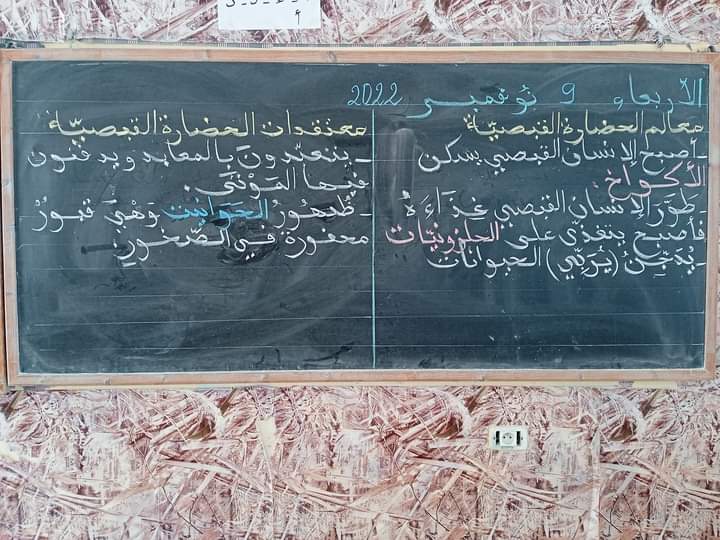 الأربعاء 9 نوفمبر 2022
معالم الحضارة القبصيّة
ـ أصبح الإنسان القبصي يسكن
الأكواخ.
ـ طوّر الإنسان القبصي غِذَاءَهُ
فأصبح يتغذى على الحلزونيّات
ـ يُدَجِّنُ (يُرَبِّي) الحيوانات
معتقدات الحضارة القبصيّة
ـ يتعبّدونَ بالمعابد ويدفنون
فيها المَوْتَى.
ـ ظُهُورُ الحَوانِت وَهْيَ قبورٌ
محفورة في الصُّخورِ.